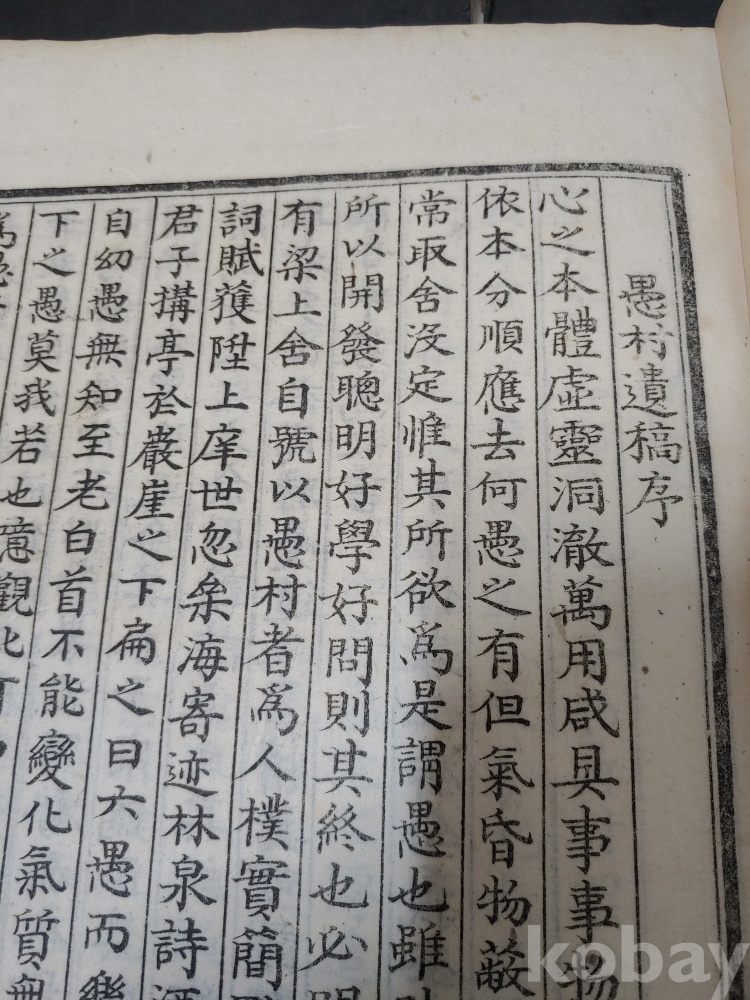 愚村遺稿序
心之本體虛靈洞澈萬用咸具事事物
依本分順應去何愚之有但氣昏物蔽
常取舍沒定惟其所欲為是謂愚也雖
所以開發聰明好學好問則其終也必明
有梁上舍自號以愚村者為人樸實簡
詞賦獲陞上庠世忽桑海寄迹林泉詩酒
君子搆亭於巖崖之下扁之曰六愚而樂
自幼愚無知至老白首不能變化氣質無
下之愚莫我若也噫觀此
為愚
kobay